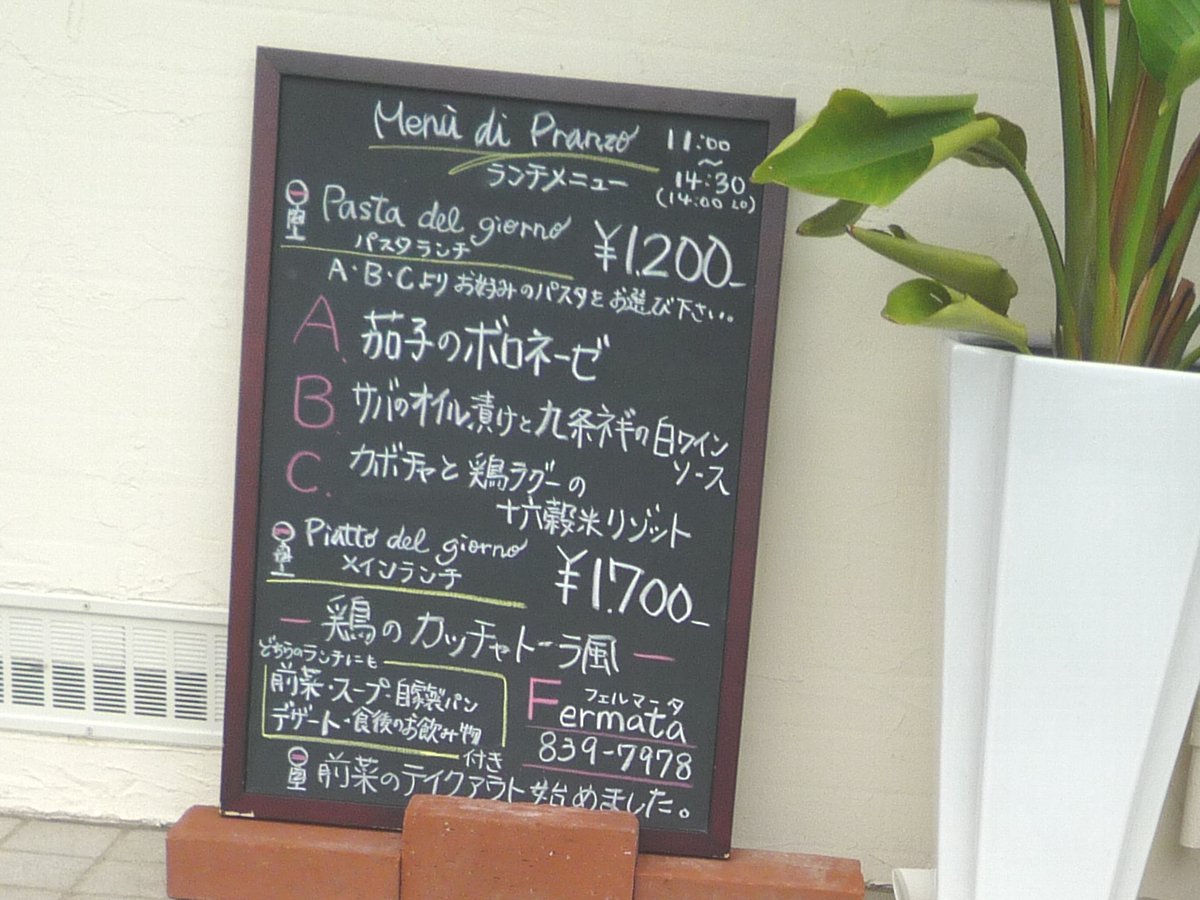 Menù di Pranzo
11:00
~
14:30
(14:00 LO)
ランチメニュー
Pasta del giorno
パスタランチ
¥1.200-
A・B・Cよりお好みのパスタをお選び下さい。
A. 茄子のボロネーゼ
B. サバのオイル漬けと九条ネギの白ワイン
ソース
C. カボチャと鶏ラグーの
十六穀米リゾット
Piatto del giorno
メインランチ
¥1.700-
― 鶏のカッチャトーラ風 ―
どちらのランチにも
前菜・スープ・自家製パン
デザート・食後のお飲み物
付き
フェルマータ
Fermata
839-7978
前菜のテイクアウト始めました。